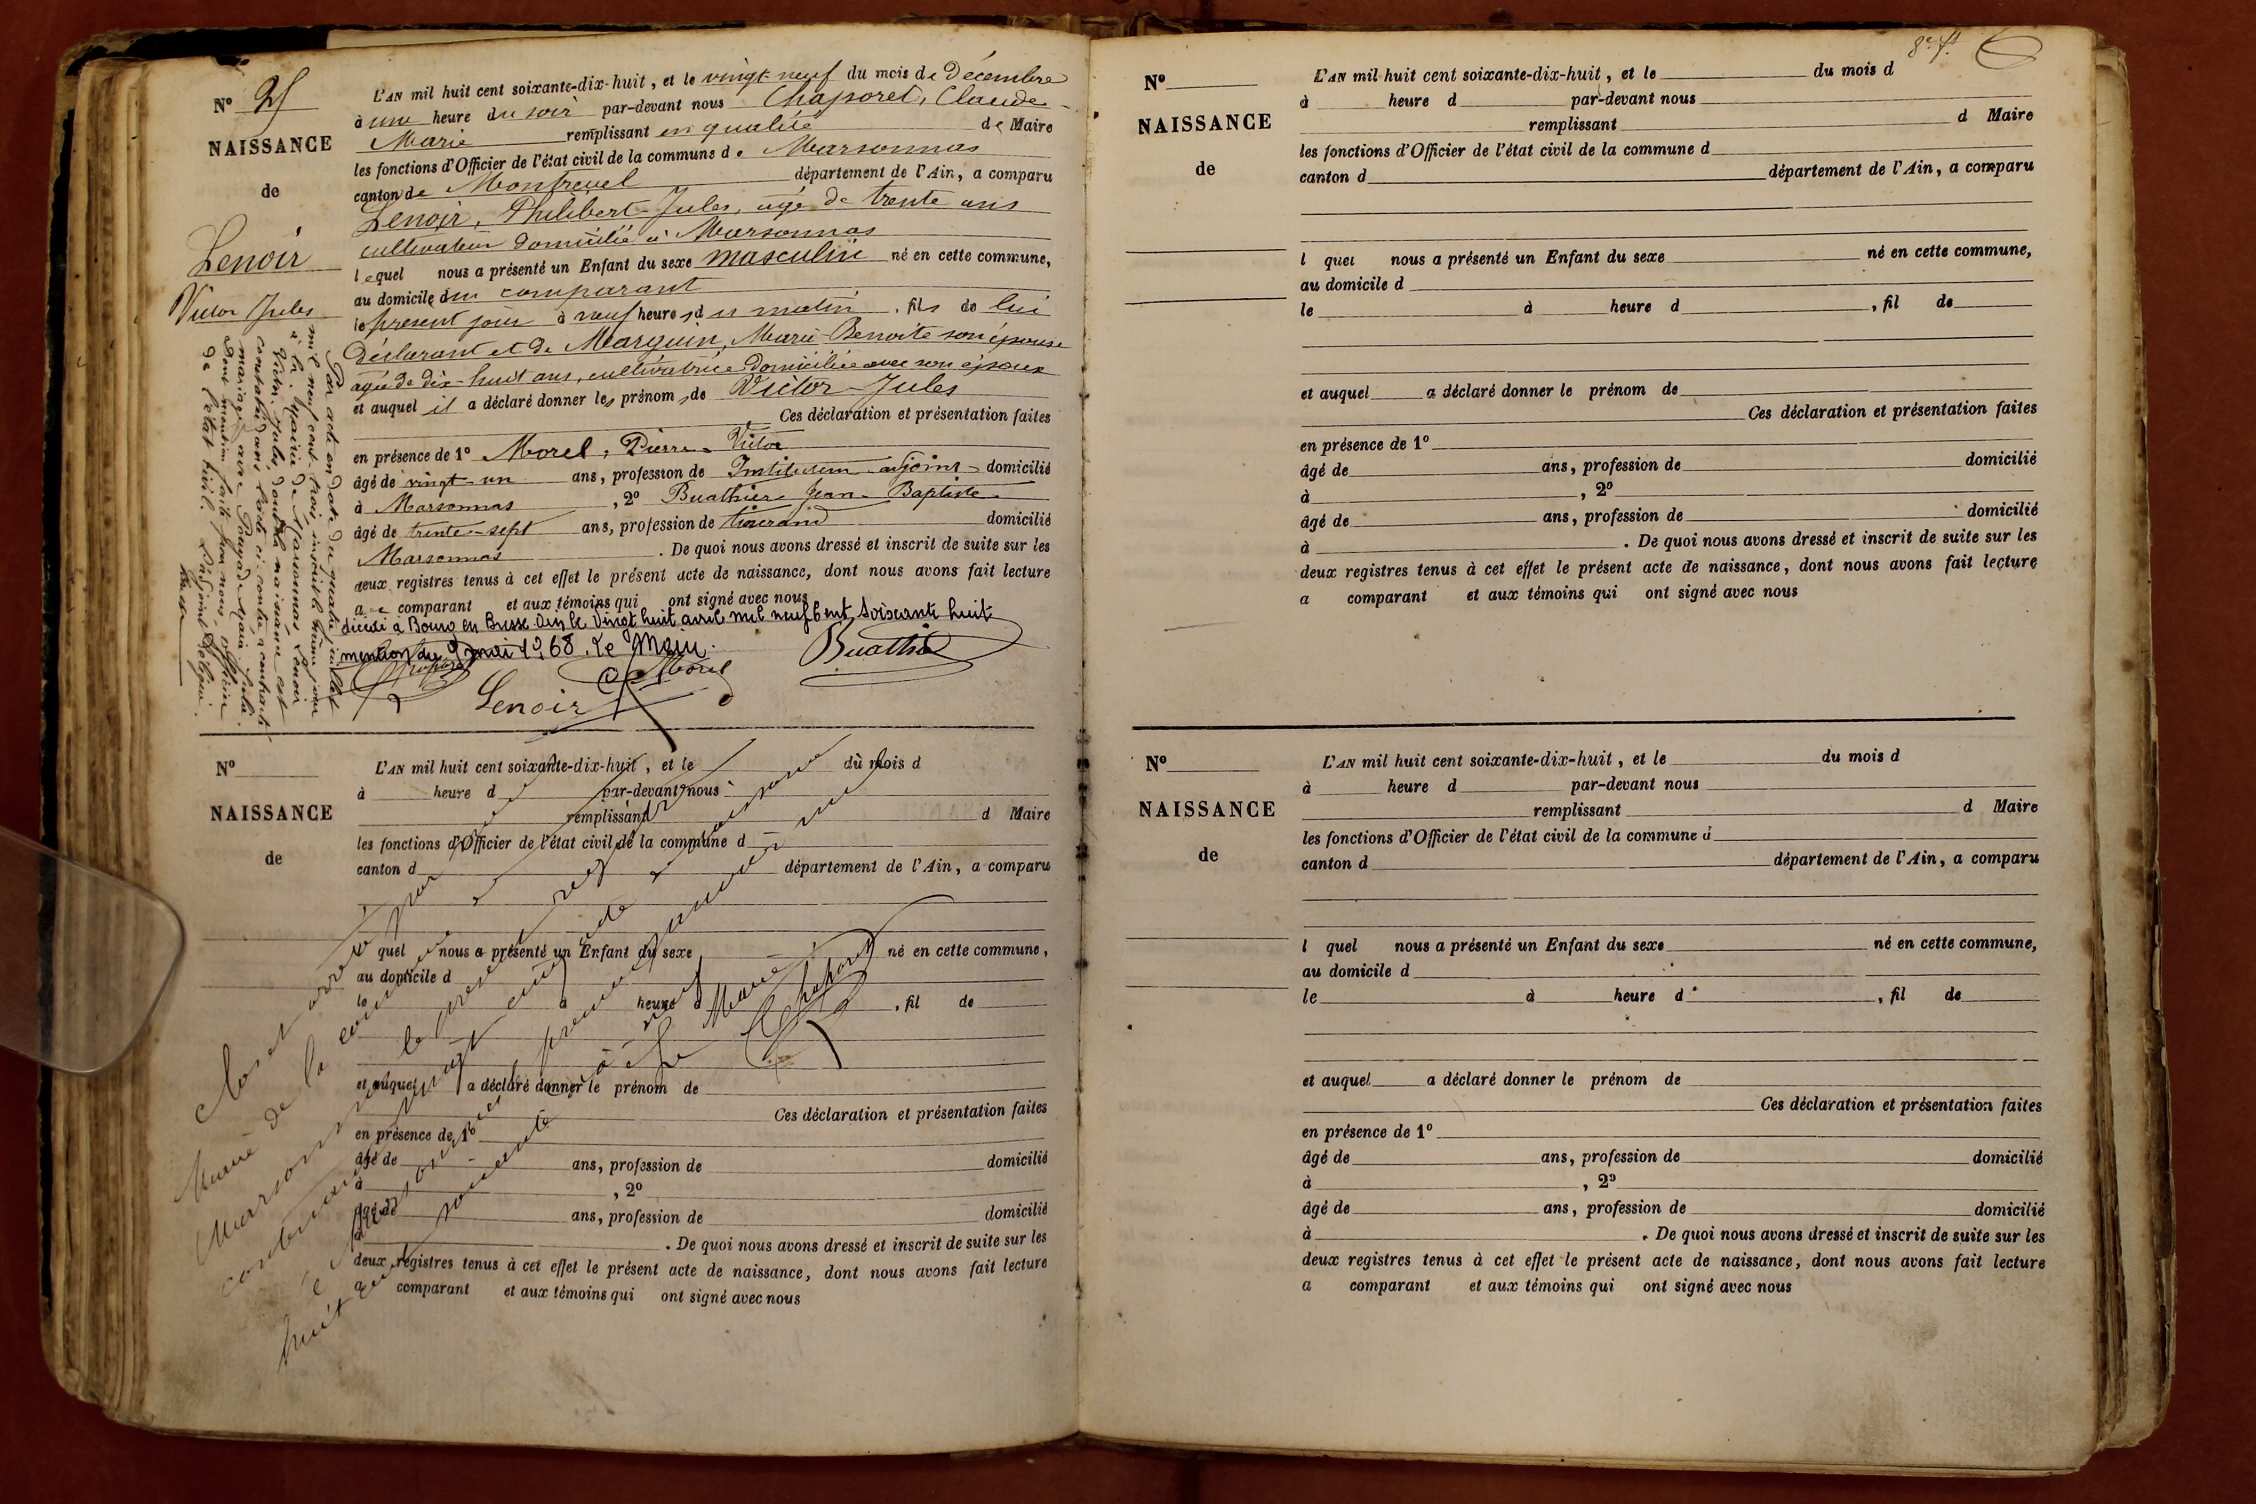 N° 25
NAISSANCE
de
Lenoir
Victor Jules
L'AN mil huit cent soixante-dix-huit, et le vingt-neuf du mois de Décembre
à une heure du soir par-devant nous Chaporel, Claude-
Marie remplissant en qualité de Maire
les fonctions d'Officier de l'état civil de la commune de Marsonnas
canton de Montrevel département de l'Ain, a comparu
Lenoir, Philibert-Jules, agé de trente ans
cultivateur domicilié à Marsonnas
lequel nous a présenté un Enfant du sexe masculin né en cette commune,
au domicile du comparant
le présent jour à neuf heures du matin, fils de lui
Déclarant et de Marguin, Marie-Benoite son épouse
agée de dix-huit ans, cultivatrice domiciliée avec son époux
et auquel il a déclaré donner les prénoms de Victor Jules
Ces déclaration et présentation faites
en présence de 1° Morel, Pierre-Victor
âgé de vingt-un ans, profession de Instituteur-adjoint domicilié
à Marsonnas, 2° Buathier Jean-Baptiste
âgé de trente-sept ans, profession de tisserand domicilié
Marsonnas. De quoi nous avons dressé et inscrit de suite sur les
deux registres tenus à cet effet le présent acte de naissance, dont nous avons fait lecture
au comparant et aux témoins qui ont signé avec nous
décédé à Bourg en Bresse Ain le vingt huit avril mil neuf cent soixante huit
mention du 9 mai 1968. Le Maire.
Chaporel
Lenoir
Morel
Buathier
Par acte en date du quatre juillet
mil neuf cent trois, inscrit le même jour
à la Mairie de Marsonnas, Lenoir
Victor Jules dont la naissance est
constatée dans l'acte ci-contre a contracté
mariage avec
Dont mention faite par nous, officier
de l'état civil.
N°
NAISSANCE
de
L'AN mil huit cent soixante-dix-huit, et le du mois d
à heure d par-devant nous
remplissant d Maire
les fonctions d'Officier de l'état civil de la commune d
canton d département de l'Ain, a comparu
quel nous a présenté un Enfant du sexe né en cette commune,
au domicile d
le à heure d, fil de
et auquel a déclaré donner le prénom de
Ces déclaration et présentation faites
en présence de 1°
âgé de ans, profession de domicilié
à, 2°
âgé de ans, profession de domicilié
. De quoi nous avons dressé et inscrit de suite sur les
deux registres tenus à cet effet le présent acte de naissance, dont nous avons fait lecture
a comparant et aux témoins qui ont signé avec nous
Clos et arrêté par nous
Maire de la commune de
Marsonnas le présent registre
contenant vingt cinq actes
Marsonnas le premier janvier mil
huit cent soixante dix neuf
Le Maire
Chaporel
8e ft
N°
NAISSANCE
de
L'AN mil huit cent soixante-dix-huit, et le du mois d
à heure d par-devant nous
remplissant d Maire
les fonctions d'Officier de l'état civil de la commune d
canton d département de l'Ain, a comparu
l quel nous a présenté un Enfant du sexe né en cette commune,
au domicile d
le à heure d, fil de
et auquel a déclaré donner le prénom de
Ces déclaration et présentation faites
en présence de 1°
âgé de ans, profession de domicilié
à, 2°
âgé de ans, profession de domicilié
à. De quoi nous avons dressé et inscrit de suite sur les
deux registres tenus à cet effet le présent acte de naissance, dont nous avons fait lecture
a comparant et aux témoins qui ont signé avec nous
N°
NAISSANCE
de
L'AN mil huit cent soixante-dix-huit, et le du mois d
à heure d par-devant nous
remplissant d Maire
les fonctions d'Officier de l'état civil de la commune d
canton d département de l'Ain, a comparu
l quel nous a présenté un Enfant du sexe né en cette commune,
au domicile d
le à heure d, fil de
et auquel a déclaré donner le prénom de
Ces déclaration et présentation faites
en présence de 1°
âgé de ans, profession de domicilié
à, 2°
âgé de ans, profession de domicilié
à. De quoi nous avons dressé et inscrit de suite sur les
deux registres tenus à cet effet le présent acte de naissance, dont nous avons fait lecture
a comparant et aux témoins qui ont signé avec nous